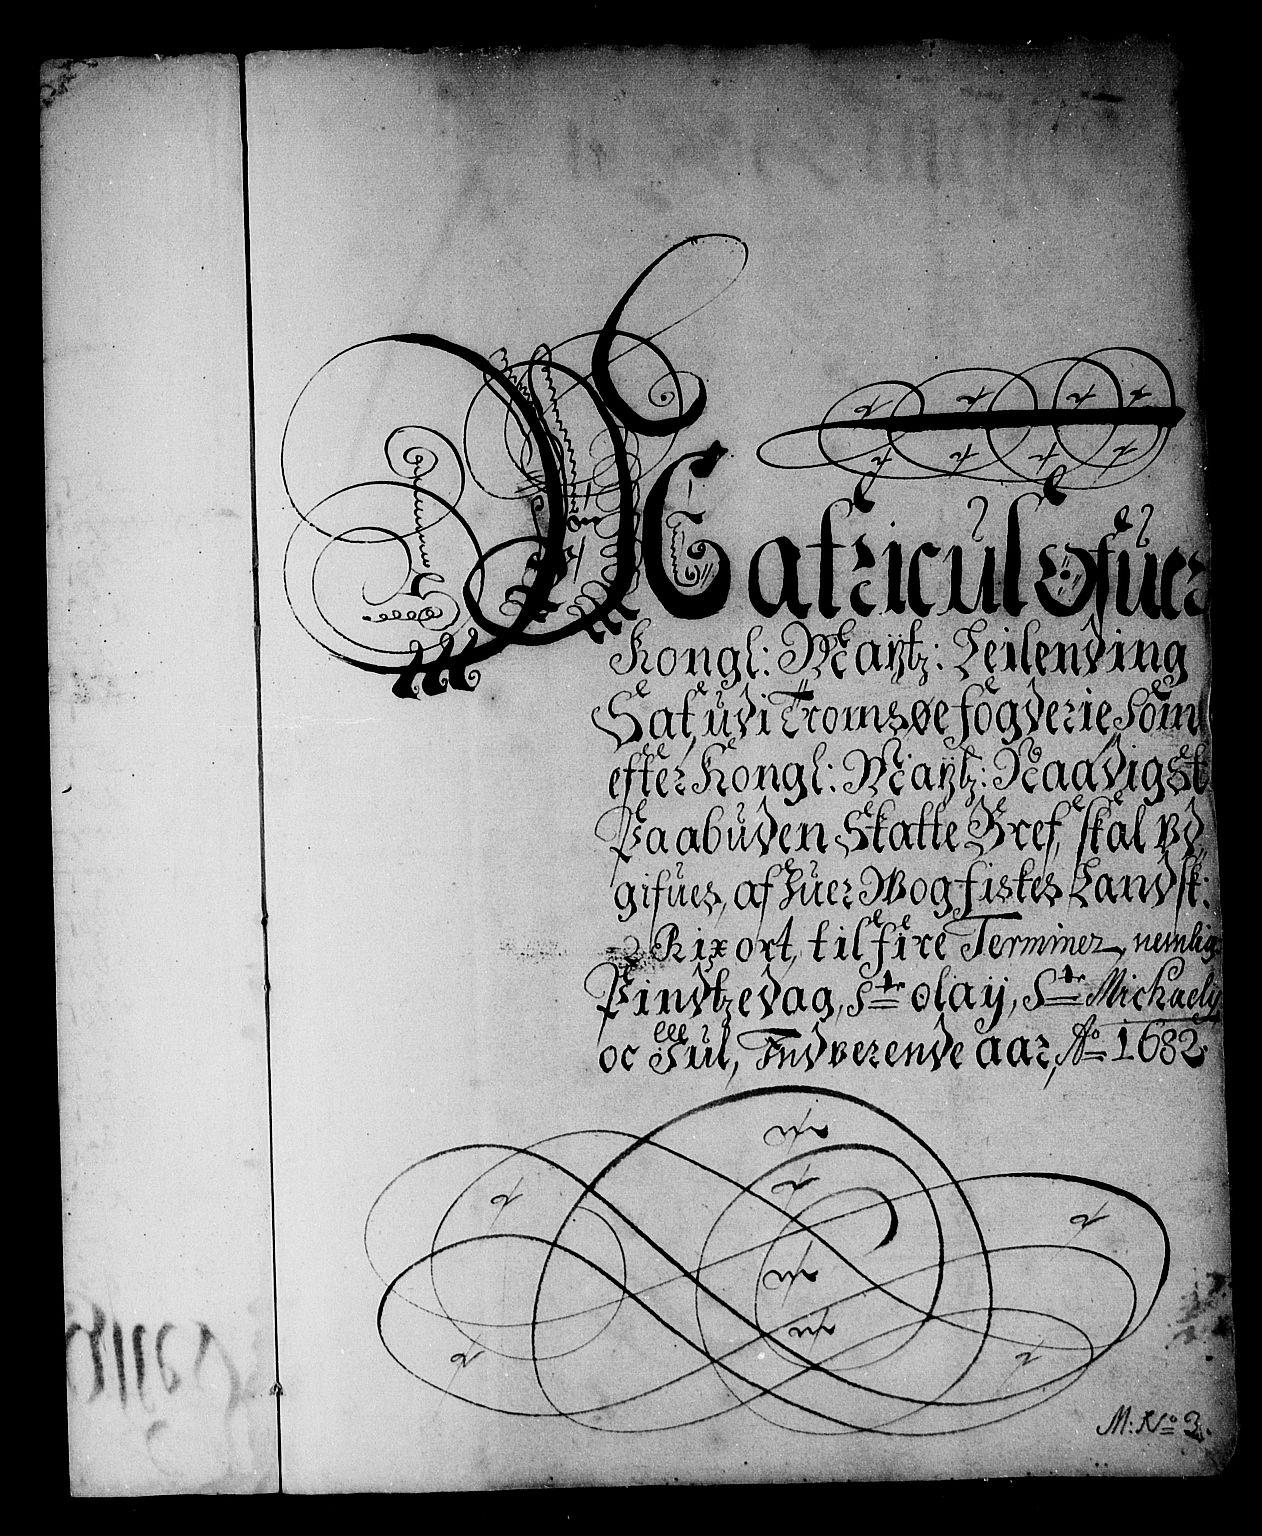 Matricul ofuer
Kongl: Maÿtz: Leilending
Sat, udi Tromsøe fogderie som
efter Kongl: Maÿtz: Naadigst
Paabuden Skatte Bref, skal Vd,
gifues, af huer Wog fiskes Landsk:
2 Rixort, til fire Terminer, nemlig
Pindtzedag, Ste olaÿ, Ste Michaely
oc Juul, Indverende aar, Ao 1682.
M: No 3.